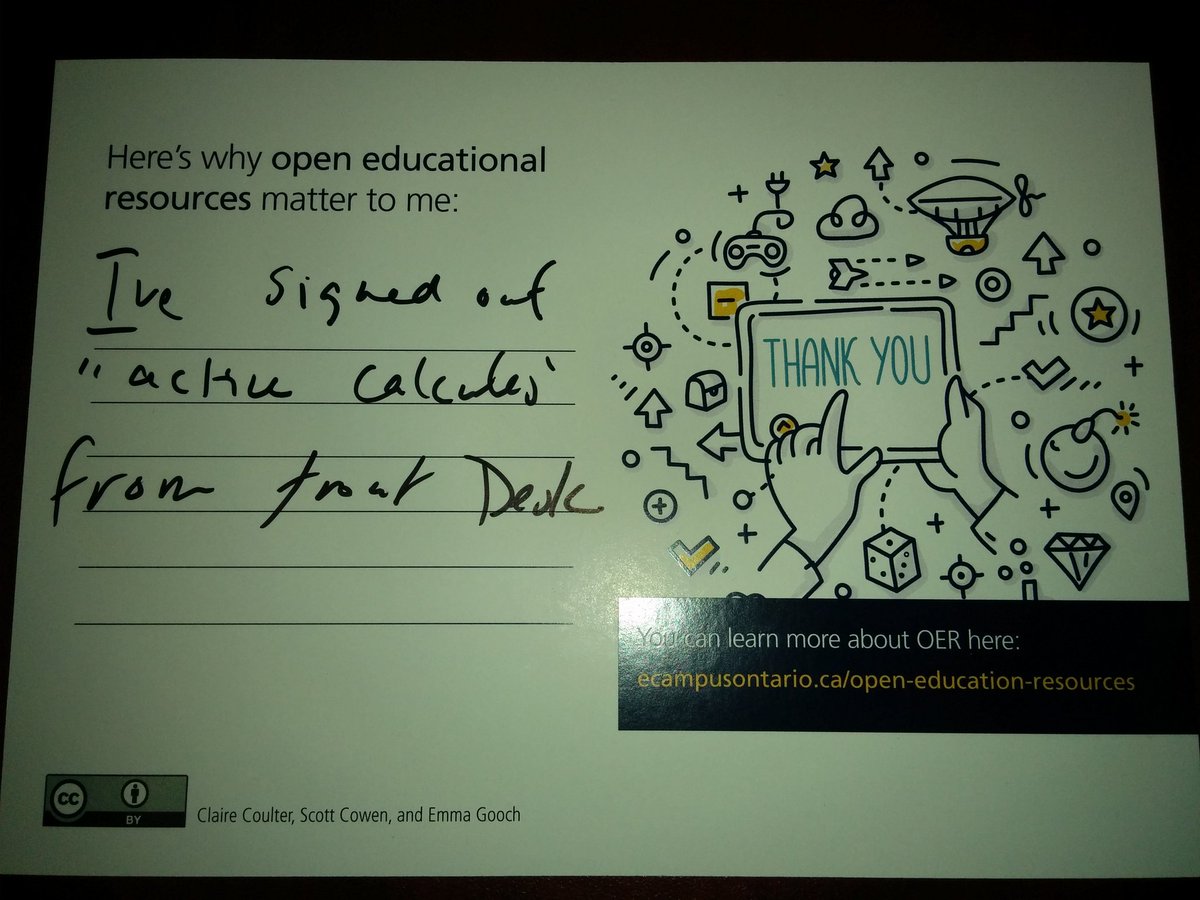 Here's why open educational
resources matter to me:
Ive signed out
"active calculus"
from front Desk
THANK YOU
You can learn more about OER here:
ecampusontario.ca/open-education-resources
cc
BY
Claire Coulter, Scott Cowen, and Emma Gooch